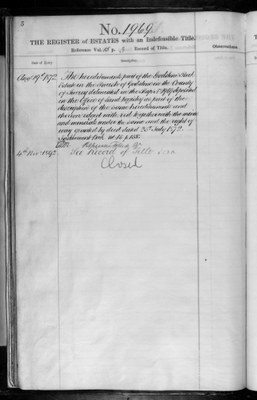 No. 1969
THE REGISTER of ESTATES with an Indefeasible Title.
Reference Vol. p. Record of Title.
Date of Entry. Description. Observations.
Augt 19th 1872. The Hereditaments part of the Godstone
Estate in the Parish of Godstone in the County
of Surrey delineated on the Map deposited
in the Office of Land Registry as part of the
description of the same Hereditaments and
thereon edged with red together with the mines
and minerals under the same and the right of
way granted by deed dated 25th July 1872
4th Nov 1897. See Record of Title
Closed